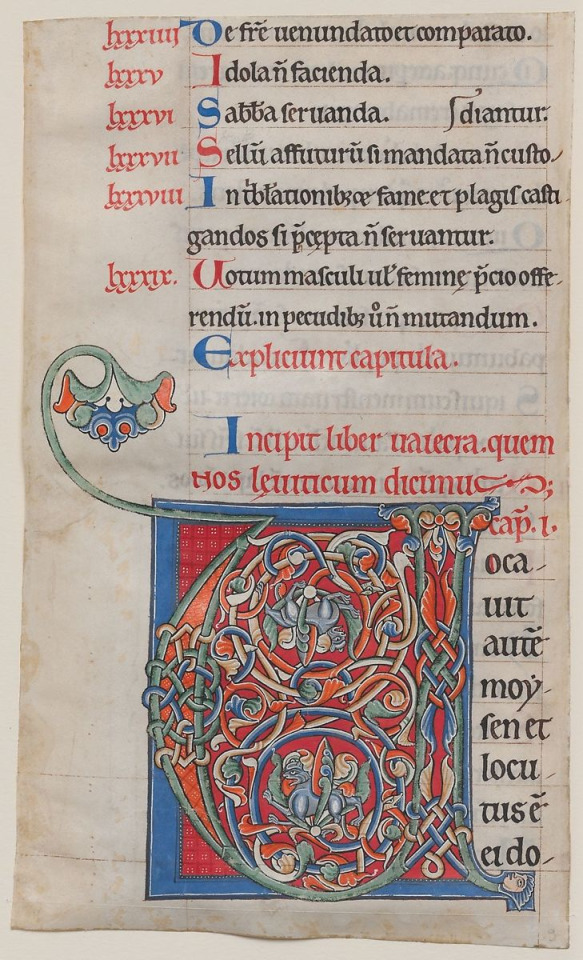 lxxxiiii De fr̄e uenundato et comparato.
lxxxv Idola n̄ facienda.
lxxxvi Sabb̄a seruanda. ſdiantur.
lxxxvii Bellū affuturū si mandata n̄ custo-
lxxxviii In t̄b̄lationibꝫ ⁊ fame et plagis casti
gandos si p̄cepta n̄ seruantur.
lxxxix. Uotum masculi ul̄ feminę p̄cio offe-
rendū. in pecudibꝫ ů n̄ mutandum.
Expliciunt capitula.
Incipit liber uaiecra. quem
nos leuiticum dicimus;
cap̄. i.
Uoca-
uit
autē
moy-
sen et
locu-
tus ē
ei do-
9